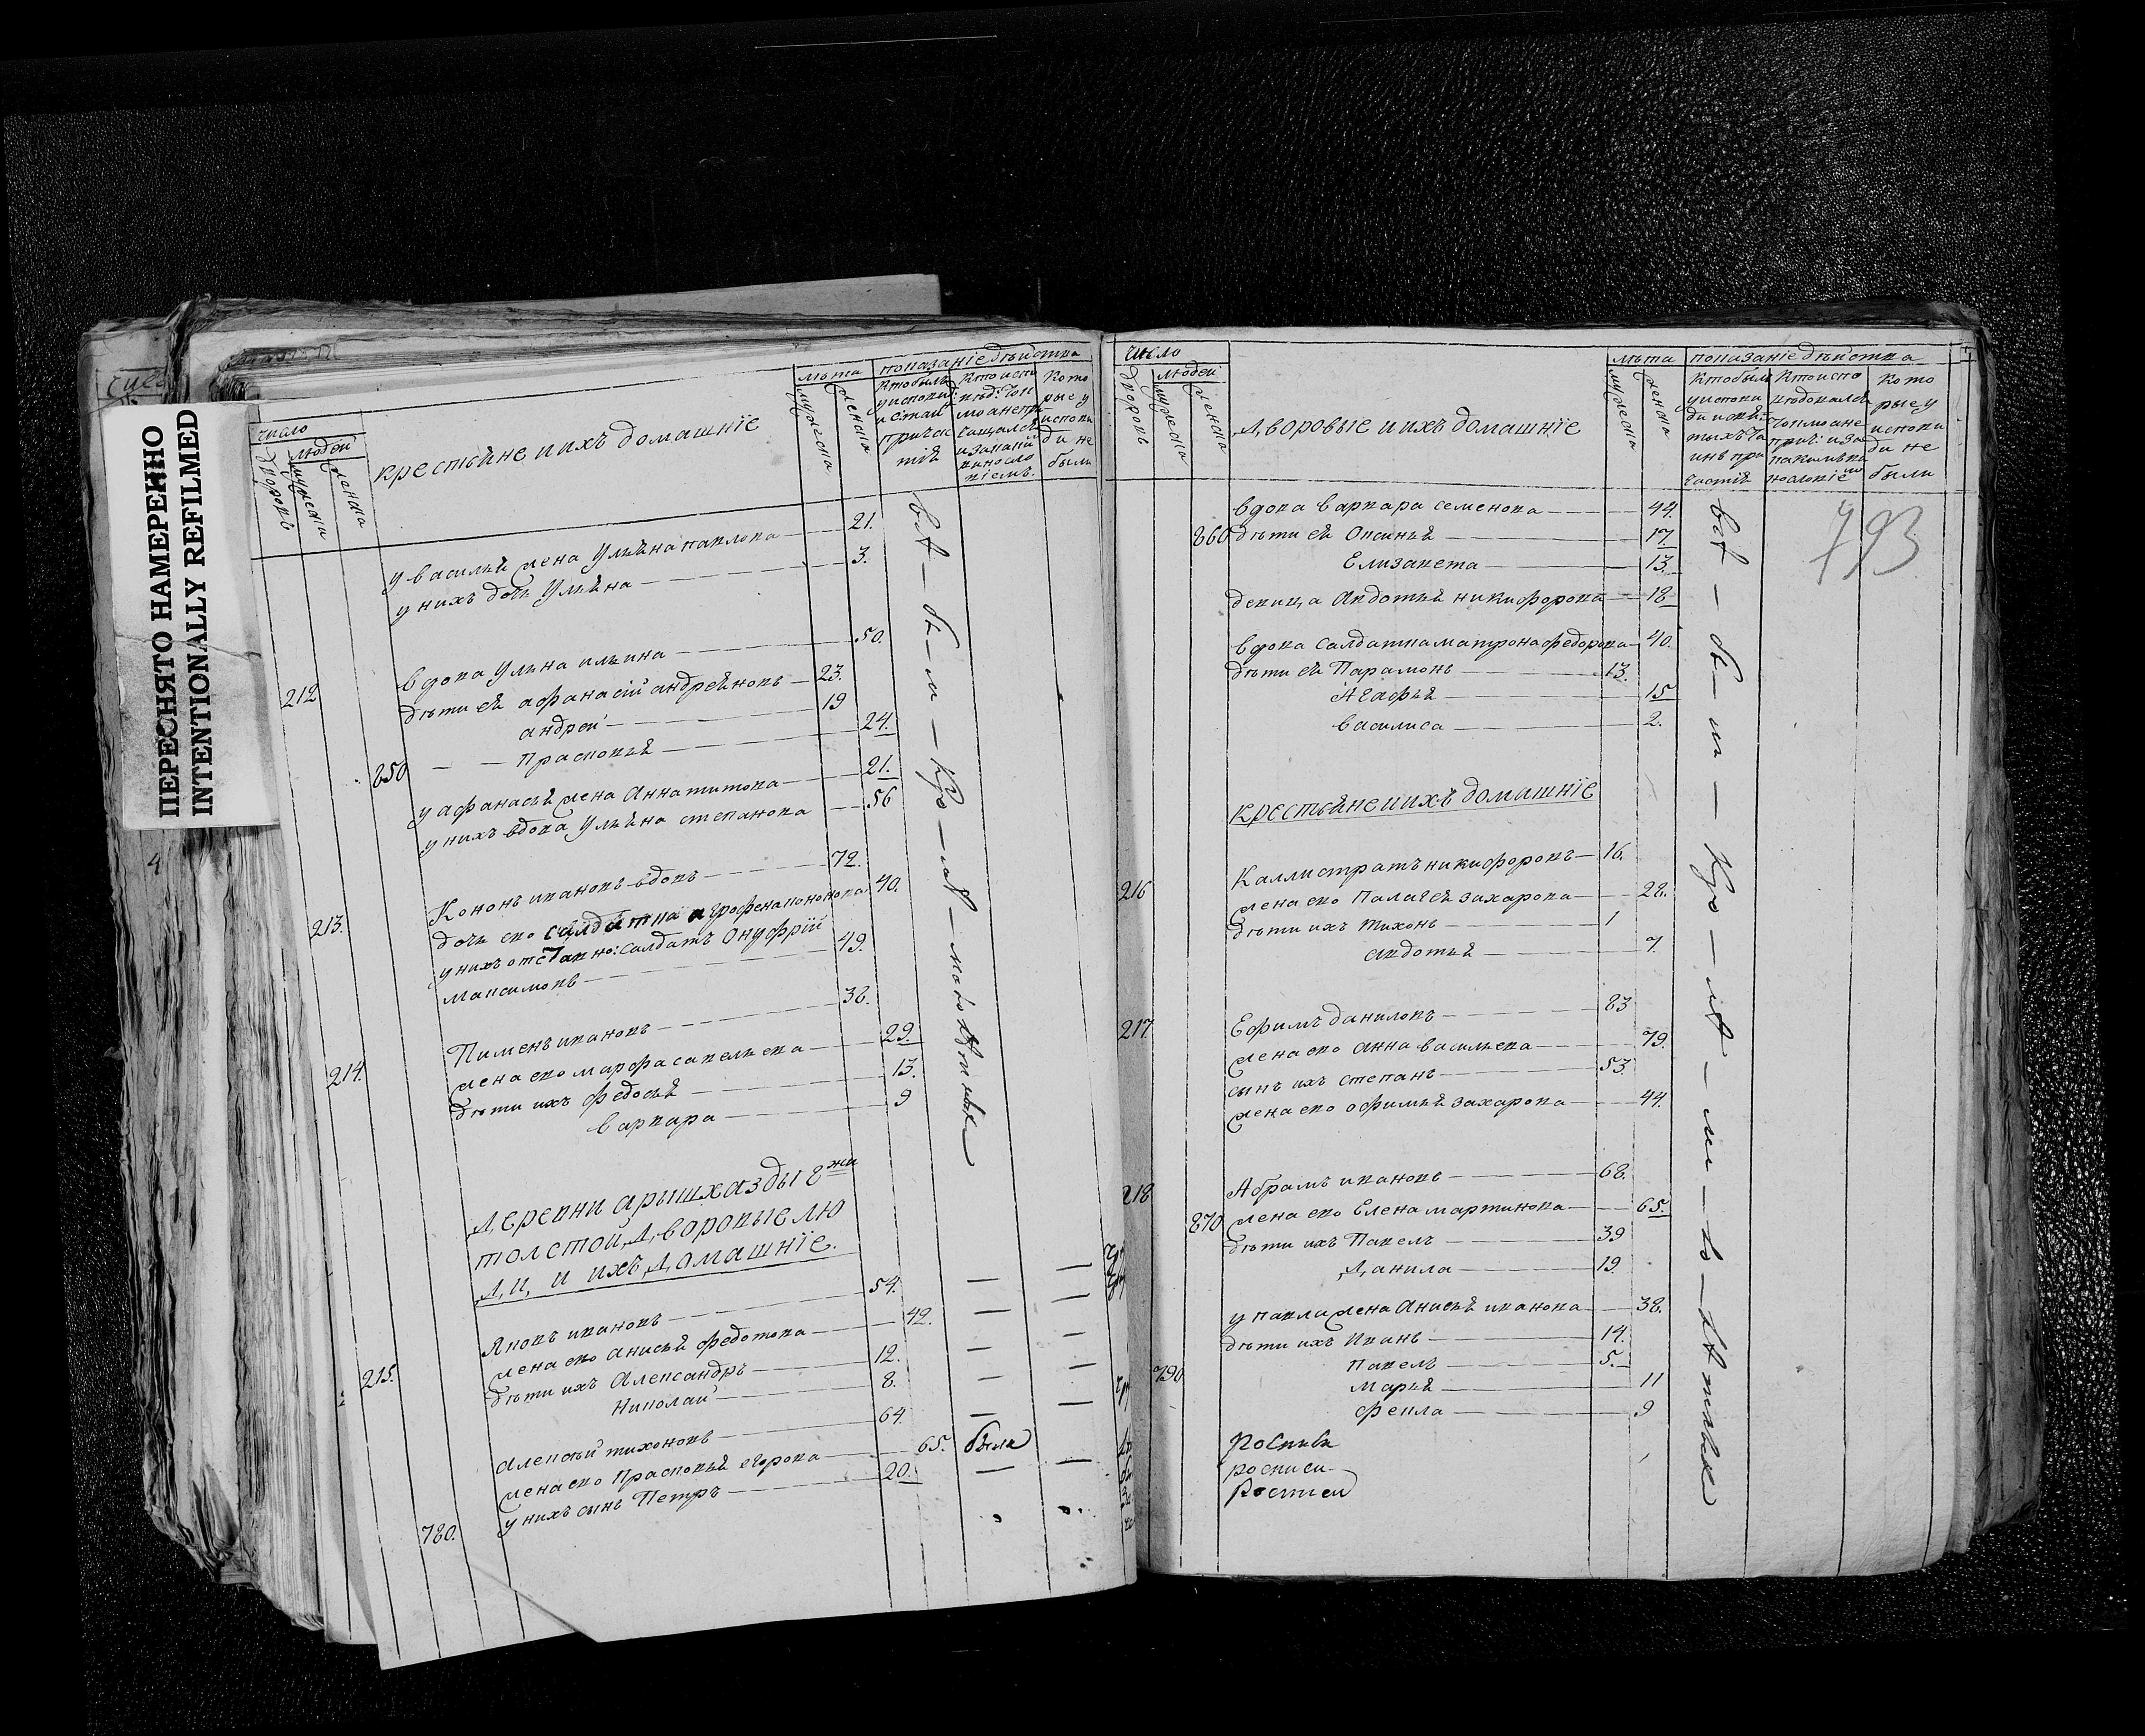 ПЕРЕСНЯТО НАМЕРЕННО
INTENTIONALLY REFILMED
число
людей
дворовъ
мужеска
женска
крестьяне и ихъ домашніе
лѣта
мужеска
женска
показаніе дѣйства
Кто были
у исповѣ:
и с:таи
причас
тія
Кто испо
вѣд: тол
мо а не пр
сащался
и за какй
виносло
віемъ.
Кото
рые у
исповѣ
ди не
были
у василья жена Ульяна павлова 21.
у нихъ дочь Ульяна 3.
212 вдова Улина ильина 50.
дѣти ея афанасій андреяновъ 23.
андрей 19
850 Прасковья 24.
у афанасья жена Анна титова 21.
у нихъ вдова Ульяна степанова 56
213. Кононъ ивановъ вдовъ 72.
дочь ево салдатка агрофена кононова 40.
у нихъ отставно: салдатъ Онуфрій
максимовъ 49.
214. Пименъ ивановъ 38.
жена ево марфа савельева 29.
дѣти ихъ Федосья 13.
варвара 9
вѣ – бы – ли – Кро – мѣ – мало лѣтныхъ
Деревни арышхазды 8 жи
толстой, Дворовые лю
ди, и ихъ Домашніе.
215. Яковъ ивановъ 54.
жена ево анисья федотова 42.
дѣти ихъ Александръ 12.
николай 8.
алексѣй тихоновъ 64
жена ево Прасковья егорова 65. были
780. у нихъ сынъ Петръ 20.
число
людей
дворовъ
мужеска
женска
Дворовые и ихъ домашніе
лѣта
мужеска
женска
показаніе дѣйства
Кто были
у исповѣ
ди и свя:
тыхъ Та
инъ при
частія
Кто испо
вѣдовался
толмо а не
прич: и за
какимъ ви
нословіем
Кото
рые у
исповѣ
ди не
были
793
вдова варвара семенова 44.
860 дѣти ея Оксинья 17.
Елизавета 13.
девица авдотья никифорова 18
вдова салдатка матрона федорова 40.
дѣти ея Парамонъ 13.
Агафья 15
василиса 2.
крестьяне и ихъ домашніе
216 Каллистратъ никифоровъ 16.
жена ево Палагея захарова 28.
дѣти ихъ тихонъ 1
авдотья 7.
217. Ефимъ даниловъ 83
жена ево анна васильева 79.
сынъ ихъ степанъ 53.
жена ево офимья захарова 44.
218 Абрамъ ивановъ 68.
870 жена ево Елена мартинова 65.
дѣти ихъ Павелъ 39
Данила 19.
у павла жена Анисья иванова 38.
дѣти ихъ Иванъ 14.
790 Павелъ 5.
Марья 11
Фекла 9
вѣ – бы – ли – Кро – мѣ – ма – ло – лѣтныхъ
росписи